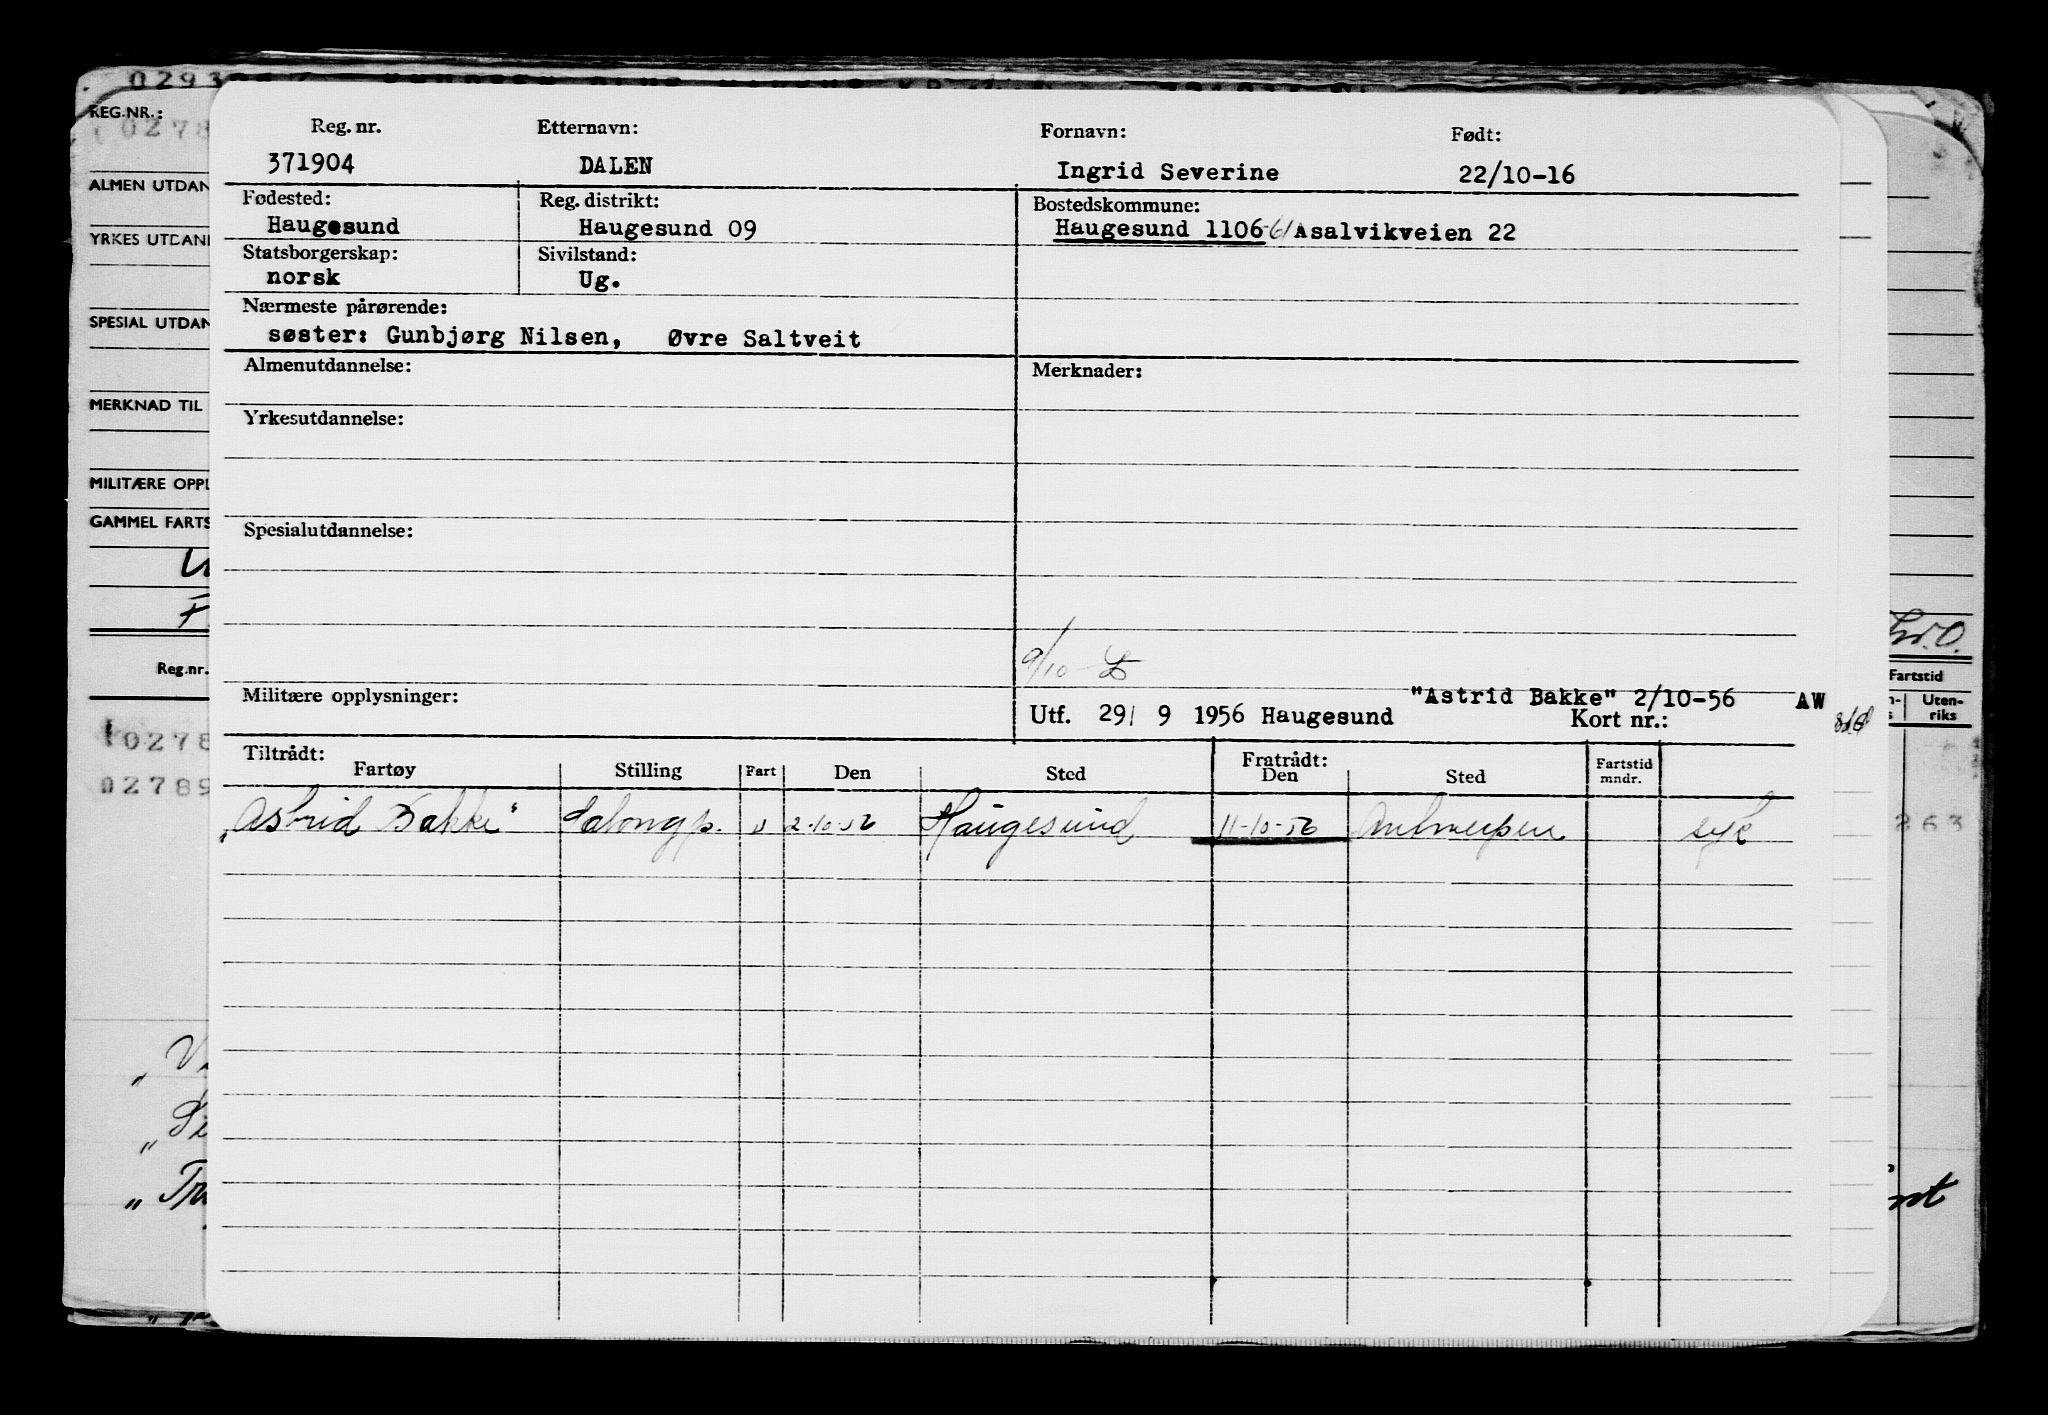 REG.NR.:
ALMEN UTDAN
YRKES UTDANN
SPESIAL UTDAN
MERKNAD TIL
MILITÆRE OPPL
GAMMEL FARTS
Reg.nr.
0278
02789
Reg. nr. Etternavn: Fornavn: Født:
371904 DALEN Ingrid Severine 22/10-16
Fødested: Reg. distrikt: Bostedskommune:
Haugesund Haugesund 09 Haugesund 1106-61 Asalvikveien 22
Statsborgerskap: Sivilstand:
norsk Ug.
Nærmeste pårørende:
søster: Gunbjørg Nilsen, Øvre Saltveit
Almenutdannelse: Merknader:
Yrkesutdannelse:
Spesialutdannelse:
9/10
Militære opplysninger: "Astrid Bakke" 2/10-56 AW
Utf. 29/ 9 1956 Haugesund Kort nr.:
Tiltrådt: Fratrådt:
Fartøy Stilling Fart Den Sted Den Sted Fartstid mndr.
"Astrid Bakke" Salongp. U 2-10-56 Haugesund 11-10-56 Antwerpen syk
Fartstid
Uten-
riks
263